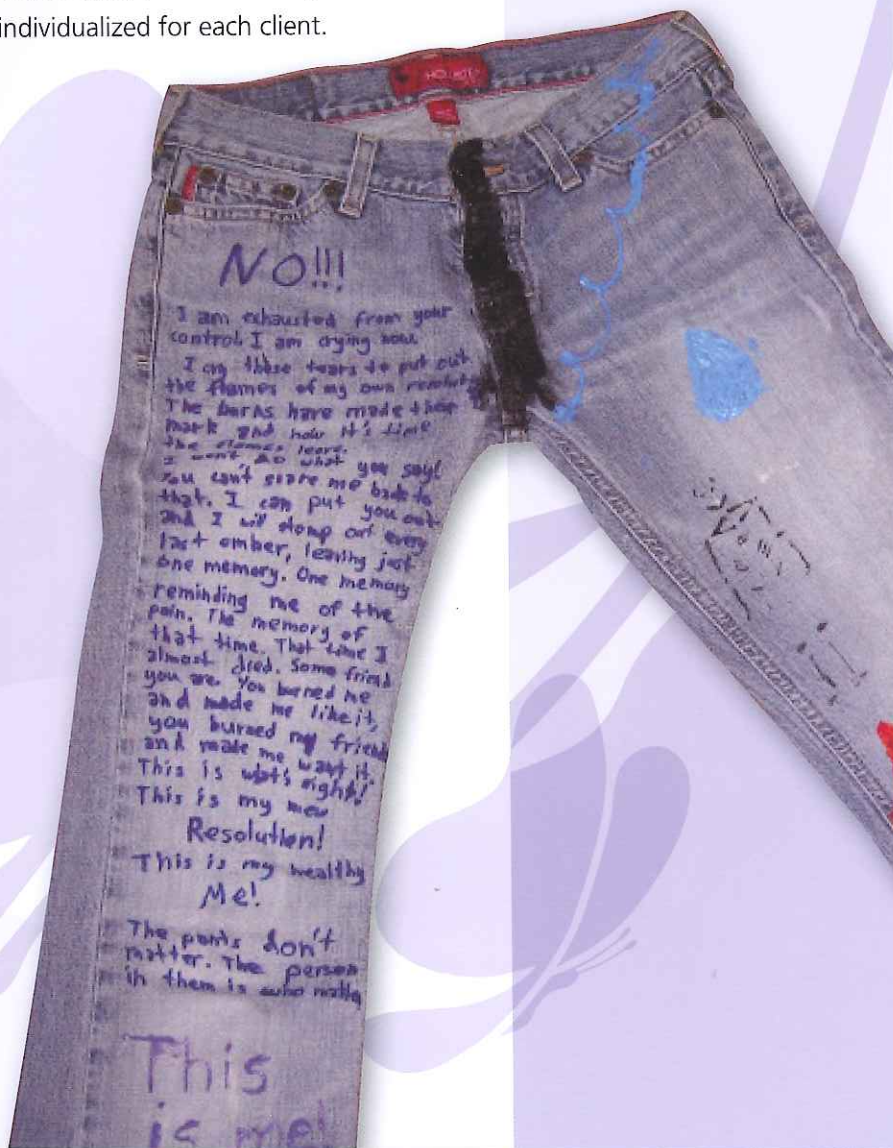 individualized for each client.
NO!!!
I am exhausted from your
control. I am crying now.
I cry these tears to put out
the flames of my own
The burns have made their
mark and now it's time
the flames leave.
I won't do what you say!
You can't scare me back to
that. I can put you out
and I will stomp out every
last ember, leaving just
one memory. One memory
reminding me of the
pain. The memory of
that time. That time I
almost died. Some friend
you are. You burned me
and made me like it,
you burned my friends
and made me want it.
This is what's right!
This is my new
Resolution!
This is my healthy
Me!
The pants don't
matter. The person
in them is who matters
This
is me!